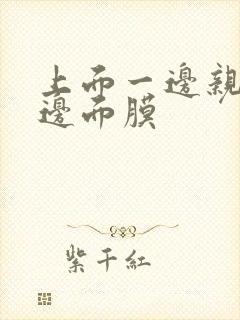 上面一邊親
邊面膜
紫千紅